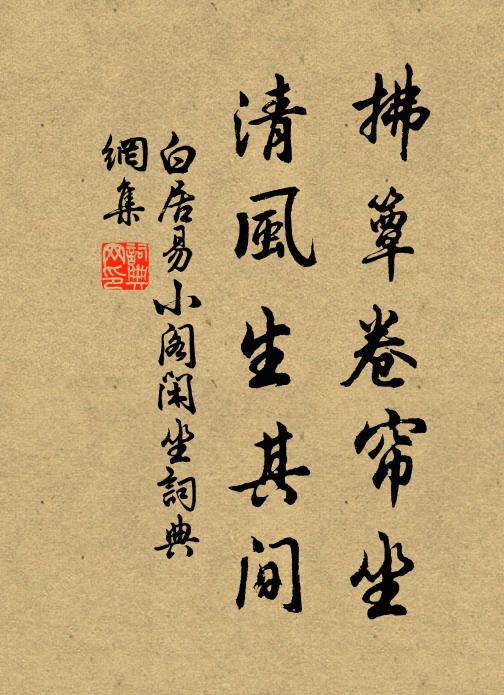 拂簟卷帘坐
清風生其间
白居易小阁闲坐詞典
網集
詞典網印